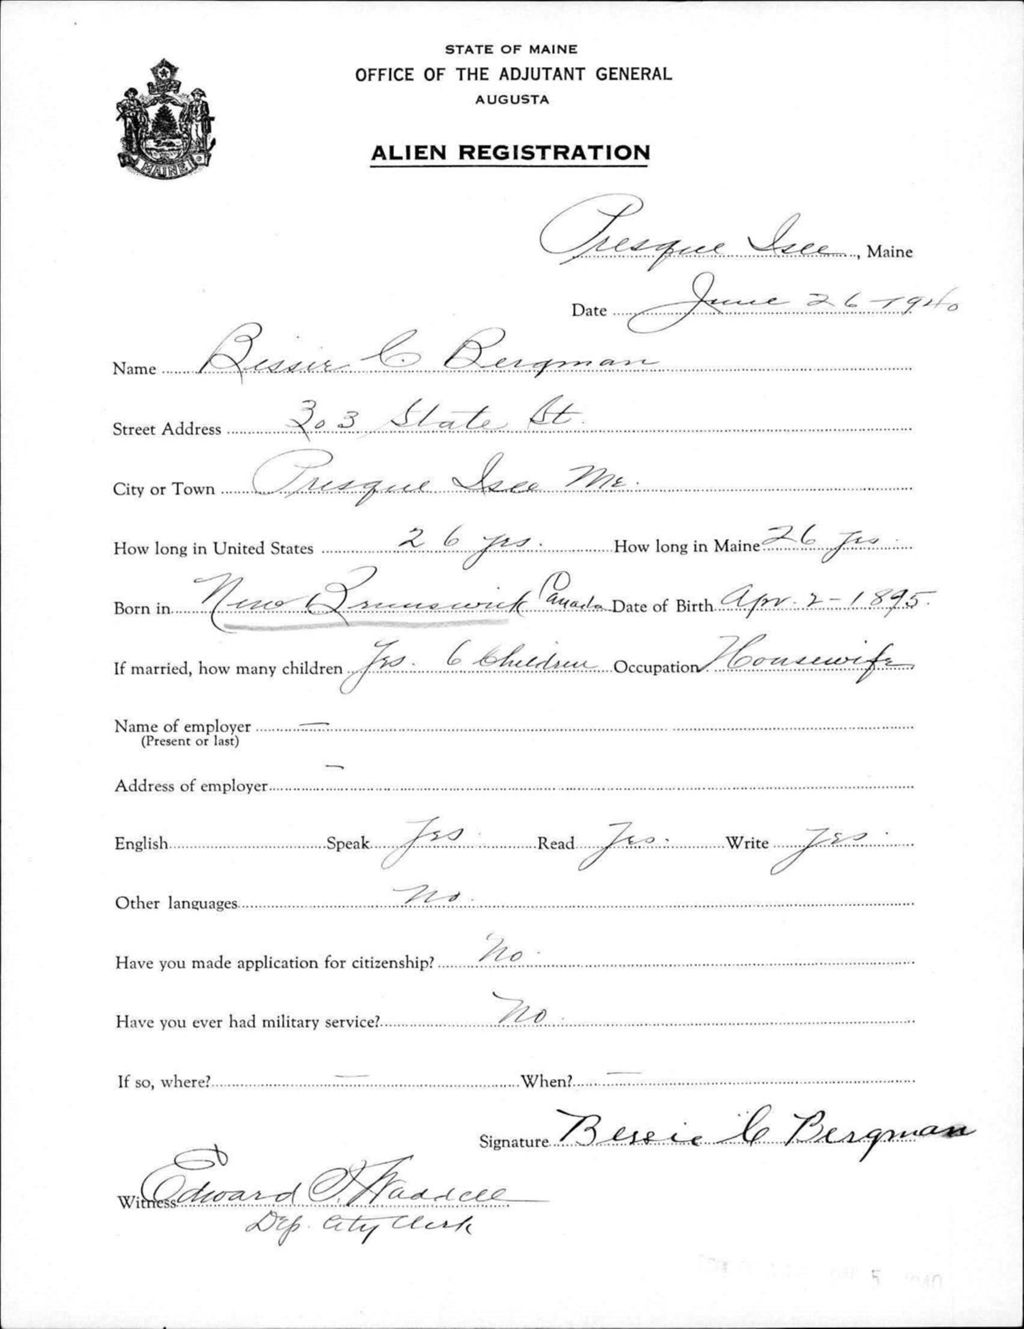 STATE OF MAINE
OFFICE OF THE ADJUTANT GENERAL
AUGUSTA
MAINE
ALIEN REGISTRATION
Presque Isle, Maine
Date June 26-1940
Name Bessie C Bergman
Street Address 303 State St.
City or Town Presque Isle Me.
How long in United States 26 yrs. How long in Maine 26 yrs
Born in New Brunswick Canada Date of Birth Apr. 2-1895.
If married, how many children Yes. 6 Children Occupation Housewife
Name of employer —
(Present or last)
Address of employer —
English Speak Yes Read Yes. Write Yes.
Other languages No.
Have you made application for citizenship? No.
Have you ever had military service? No.
If so, where? — When? —
Signature Bessie C Bergman
Witness Edward P. Waddell
Dep. City Clerk